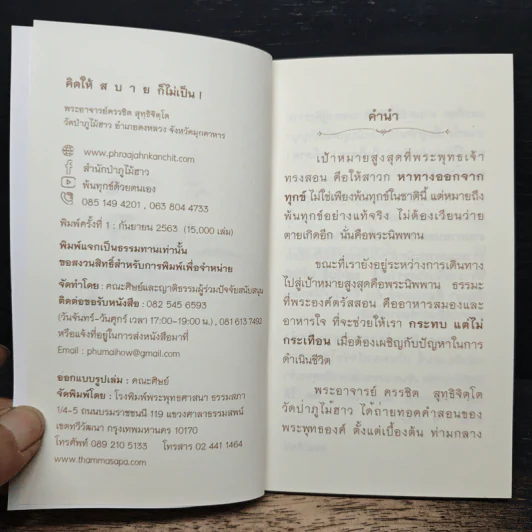 คิดให้ ส บ า ย ก็ไม่เป็น !
พระอาจารย์ครรชิต สุทฺธิจิตฺโต
วัดป่าภูไม้ฮาว อำเภอดงหลวง จังหวัดมุกดาหาร
www.phraajahnkanchit.com
สำนักป่าภูไม้ฮาว
พ้นทุกข์ด้วยตนเอง
085 149 4201 , 063 804 4733
พิมพ์ครั้งที่ 1 : กันยายน 2563 (15,000 เล่ม)
พิมพ์แจกเป็นธรรมทานเท่านั้น
ขอสงวนสิทธิ์สำหรับการพิมพ์เพื่อจำหน่าย
จัดทำโดย : คณะศิษย์และญาติธรรมผู้ร่วมปัจจัยสนับสนุน
ติดต่อขอรับหนังสือ : 082 545 6593
(วันจันทร์-วันศุกร์ เวลา 17:00-19:00 น.) , 081 613 7492
หรือแจ้งที่อยู่ในการส่งหนังสือมาที่
Email : phumaihow@gmail.com
ออกแบบรูปเล่ม : คณะศิษย์
จัดพิมพ์โดย : โรงพิมพ์พระพุทธศาสนา ธรรมสภา
1/4-5 ถนนบรมราชชนนี 119 แขวงศาลาธรรมสพน์
เขตทวีวัฒนา กรุงเทพมหานคร 10170
โทรศัพท์ 089 210 5133 โทรสาร 02 441 1464
www.thammasapa.com
คำนำ
เป้าหมายสูงสุดที่พระพุทธเจ้า
ทรงสอน คือให้สาวก หาทางออกจาก
ทุกข์ ไม่ใช่เพียงพ้นทุกข์ในชาตินี้ แต่หมายถึง
พ้นทุกข์อย่างแท้จริง ไม่ต้องเวียนว่าย
ตายเกิดอีก นั่นคือพระนิพพาน
ขณะที่เรายังอยู่ระหว่างการเดินทาง
ไปสู่เป้าหมายสูงสุดคือพระนิพพาน ธรรมะ
ที่พระองค์ตรัสสอน คืออาหารสมองและ
อาหารใจ ที่จะช่วยให้เรา กระทบ แต่ไม่
กระเทือน เมื่อต้องเผชิญกับปัญหาในการ
ดำเนินชีวิต
พระอาจารย์ ครรชิต สุทฺธิจิตฺโต
วัดป่าภูไม้ฮาว ได้ถ่ายทอดคำสอนของ
พระพุทธองค์ ตั้งแต่เบื้องต้น ท่ามกลาง